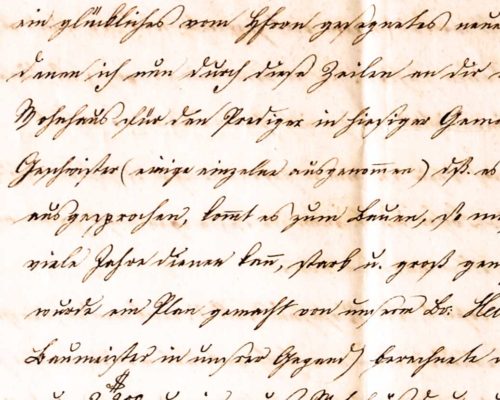 ein glückliches vom Herrn gesegnetes neue
denen ich nun durch diese Zeilen an dir
Wohnhaus für den Prediger in hiesiger Geme
Geschwister (einige einzelne ausgenommen) daß es
ausgesprochen, kommt es zum Bauen, so
viele Jahre dienen kann, stark u. groß gen
wurde ein Plan gemacht von unserm Br: Hei
Baumeister in unsrer Gegend) berechnete
$